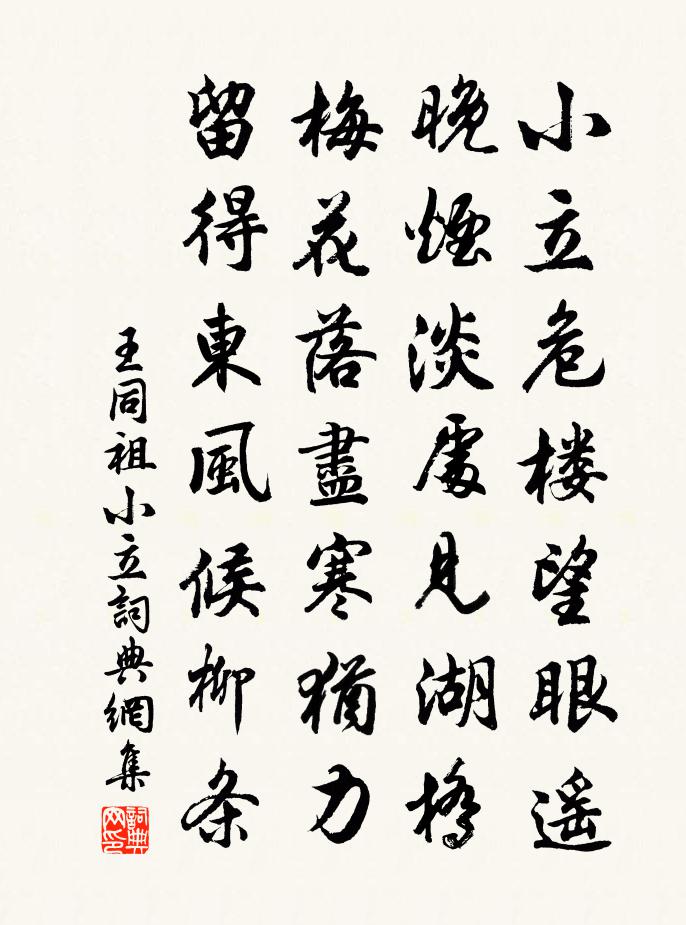 小立危楼望眼遥
晚煙淡處見湖橋
梅花落盡寒猶力
留得東風候柳条
王同祖小立詞典網集
詞典网印